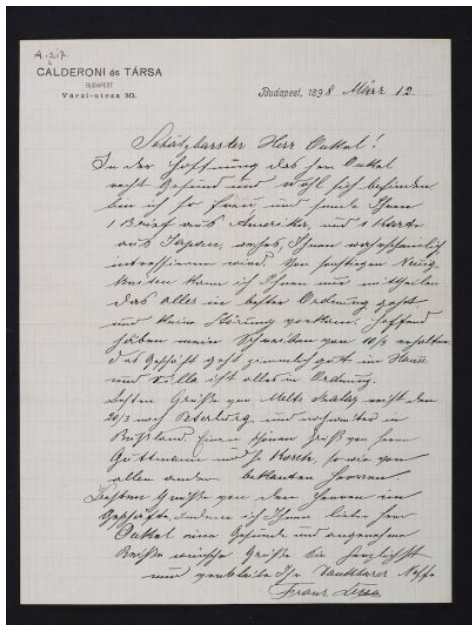 A. 217
CALDERONI és TÁRSA
BUDAPEST
Váczi-utcza 30.
Budapest, 1898 März 12.
Schätzbarster Herr Onkel!
In der Hoffnung das Herr Onkel
recht Gesund und wohl sich befinden
bin ich so frei und sende Ihnen
1 Brief aus Amerika, und 1 Karte
aus Japan, Ihnen wahrscheinlich
interessieren wird. Von sonstigen Neuig-
keiten kann ich Ihnen nur mittheilen
das alles in bester Ordnung geht
und keine Störung vorkam. Hoffend
haben mein Schreiben von 10/3 erhalten.
das Geschäft geht ziemlich gut im Hause
und Villa ist alles in Ordnung.
Besten Grüße von den
20/3 nach Petersburg, und in
Rußland. Einen schönen Gruß von Herrn
Guttmann und so wie von
allen bekannten Herren.
Besten Grüße von den Herren im
Geschäfte, indem ich Ihnen lieber Herr
Onkel eine Gesunde und angenehme
Reise wünsche Grüße Sie herzlichst
und verbleibe Ihr Dankbarer Neffe
Franz